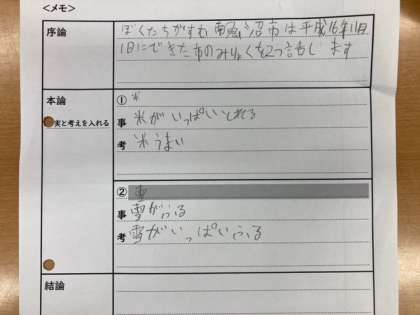 <メモ>
序論
ぼくたちがすむ南魚沼市は平成16年11月
1日にできた市のみりょくを2つ話します
本論
実と考えを入れる
① 米
事 米がいっぱいとれる
考 米うまい
② 雪
事 雪がふる
考 雪がいっぱいふる
結論